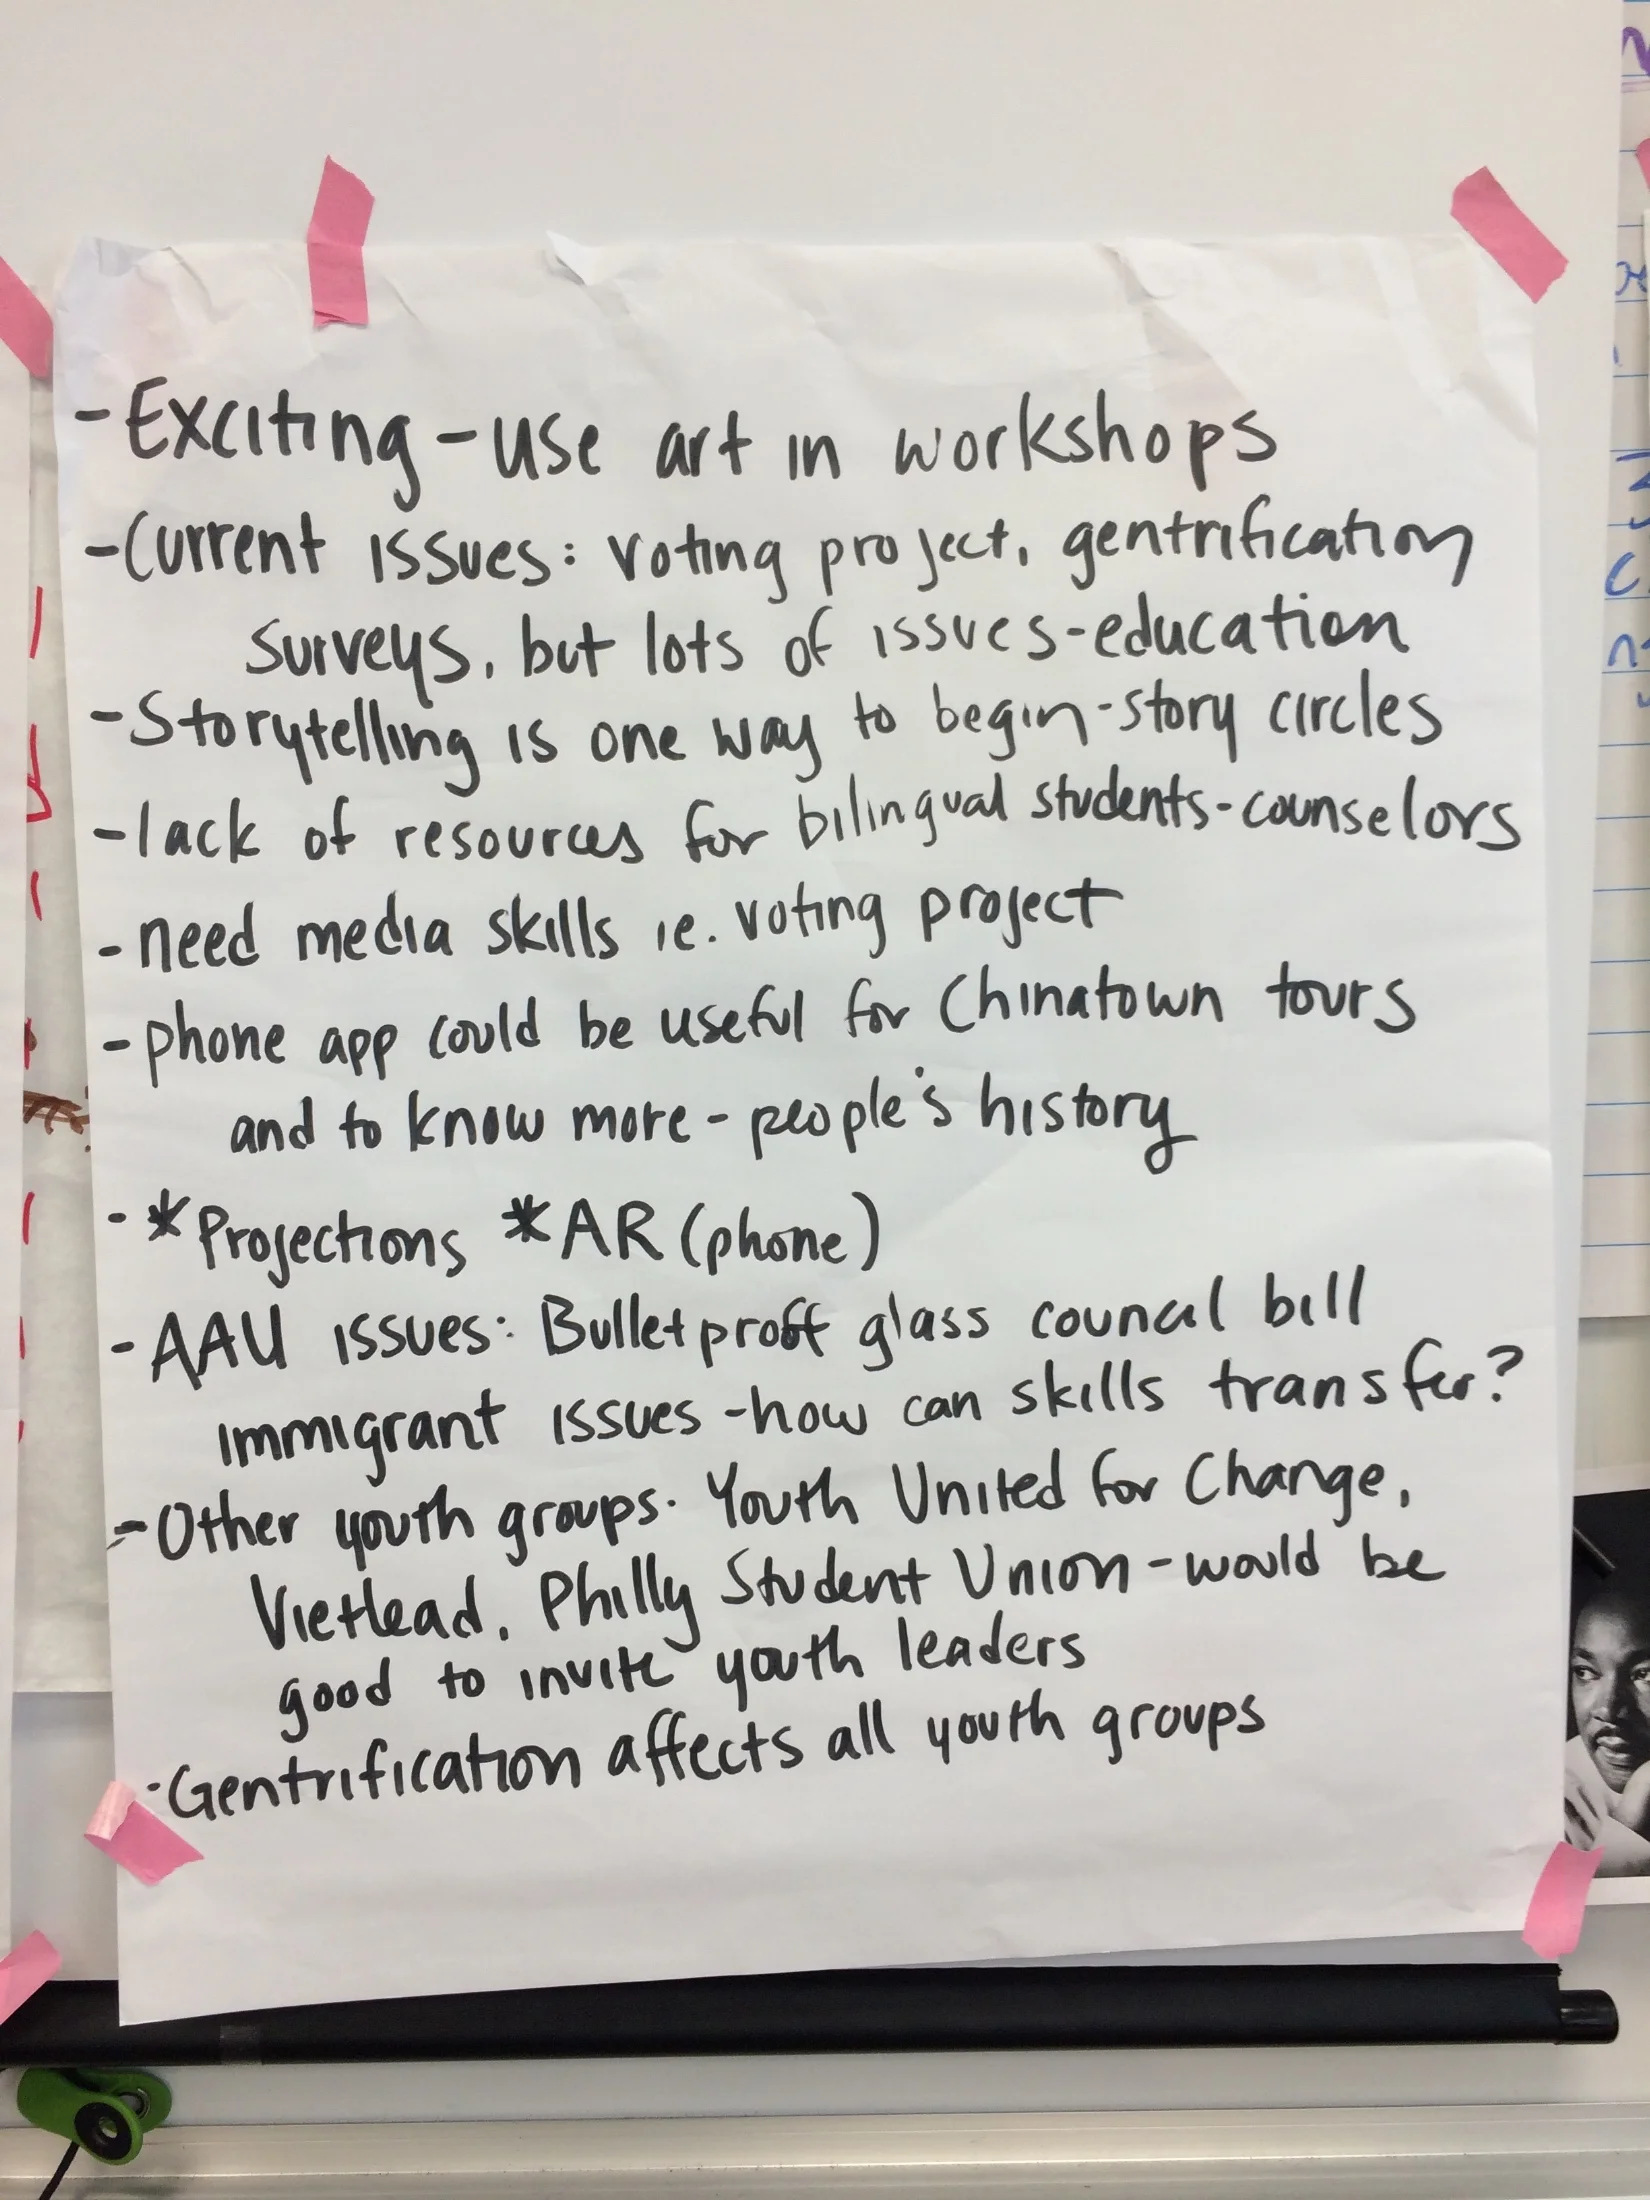 - Exciting - use art in workshops
- Current issues: voting project, gentrification
surveys, but lots of issues - education
- Storytelling is one way to begin - story circles
- lack of resources for bilingual students - counselors
- need media skills ie. voting project
- phone app could be useful for Chinatown tours
and to know more - people's history
- *Projections *AR (phone)
- AAU issues: Bulletproff glass council bill
immigrant issues - how can skills transfer?
- Other youth groups. Youth United for Change,
Vietlead, Philly Student Union - would be
good to invite youth leaders
- Gentrification affects all youth groups